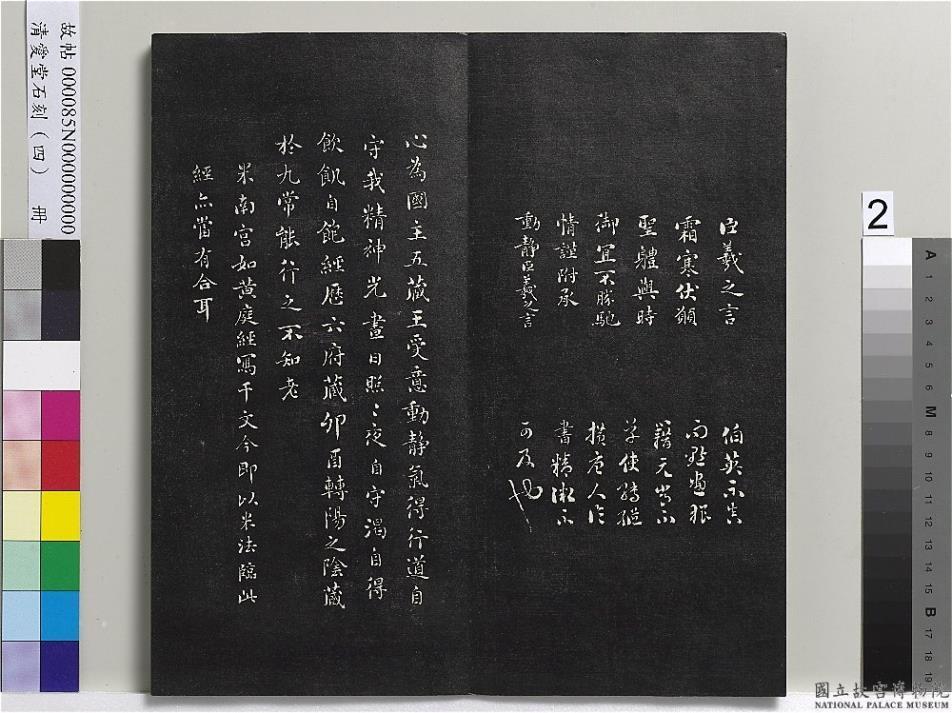 臣羲之言
霜寒伏願
聖體與時
御宜不勝馳
情謹附承
動靜臣羲之言
伯英不真
而點畫狼
藉元常不
草使轉縱
橫唐人作
書精微不
可及也
心為國主五藏王受意動靜氣得行道自
守我精神光晝日照〻夜自守渴自得
飲飢自飽經歷六府藏卯酉轉陽之陰藏
於九常能行之不知老
米南宮如黃庭經寫千文今即以米法臨此
經亦當有合耳
故帖 000085N000000000
清愛堂石刻(四) 冊
2
A 1 2 3 4 5 6 M 8 9 10 11 12 13 14 15 B 17 18 19
國立故宮博物院
NATIONAL PALACE MUSEUM